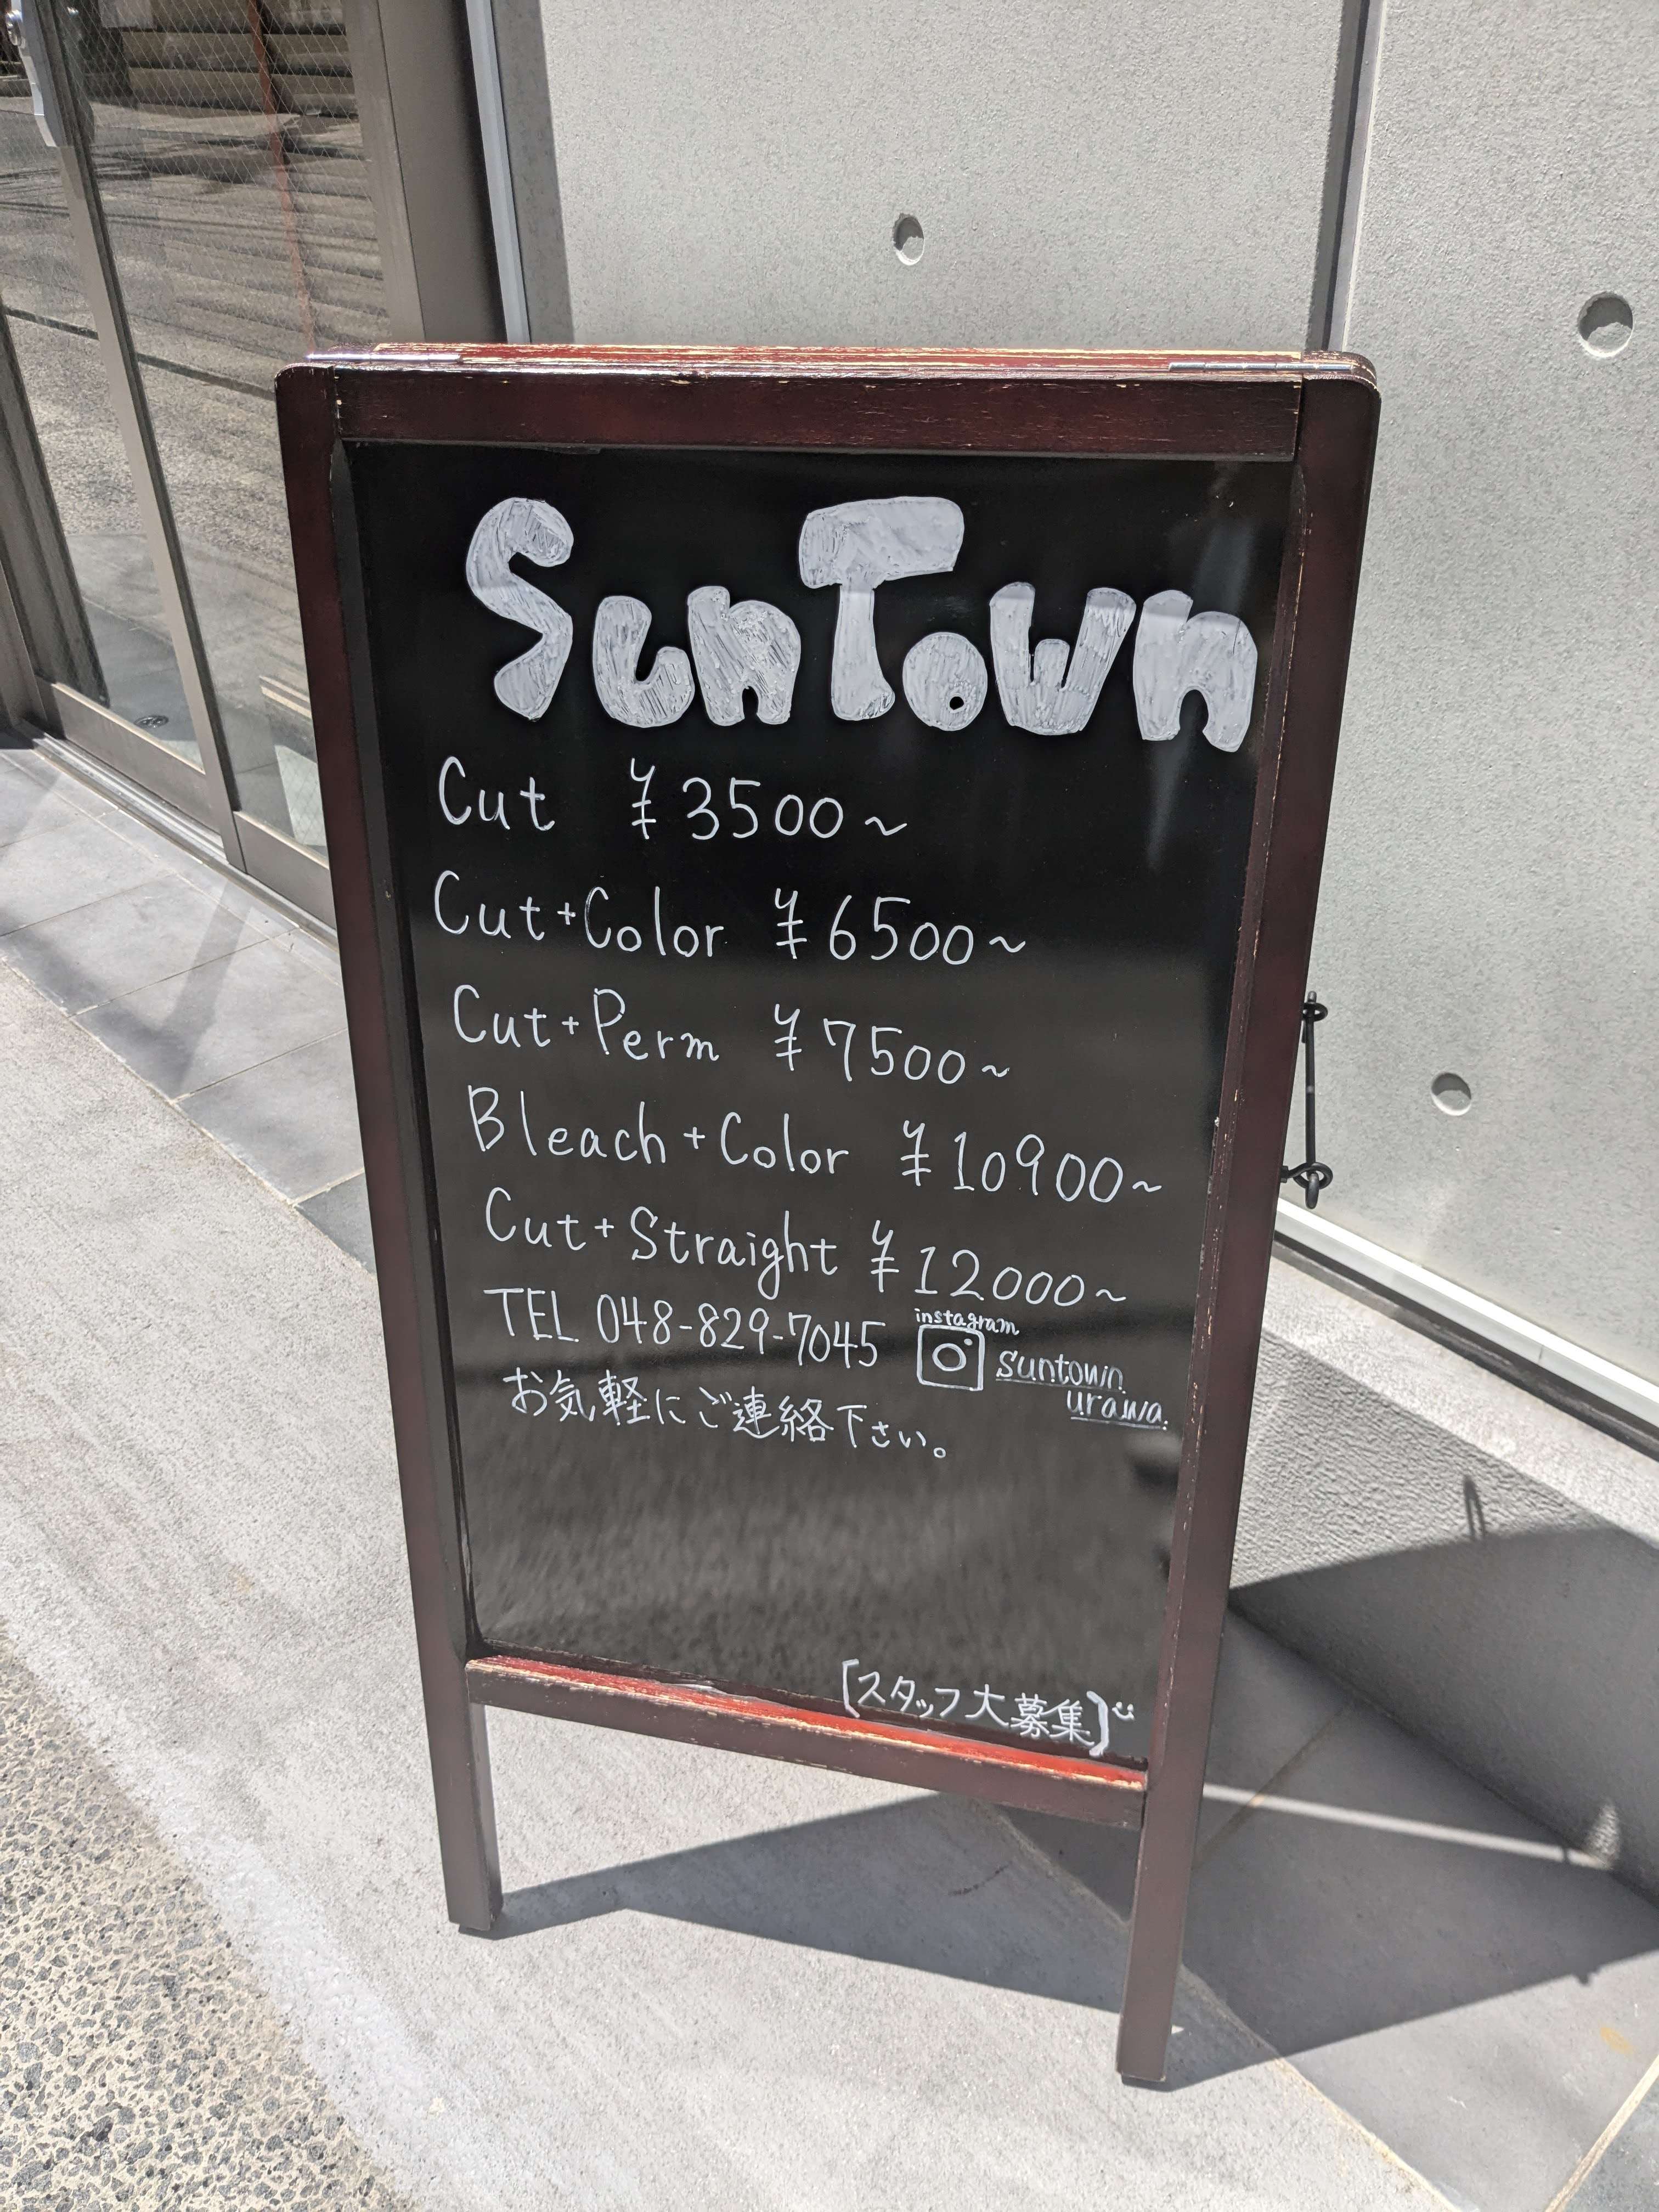 SunTown
Cut ¥3500~
Cut+Color ¥6500~
Cut+Perm ¥7500~
Bleach+Color ¥10900~
Cut+Straight ¥12000~
TEL 048-829-7045
instagram
suntown
urawa
お気軽にご連絡下さい。
[スタッフ大募集]